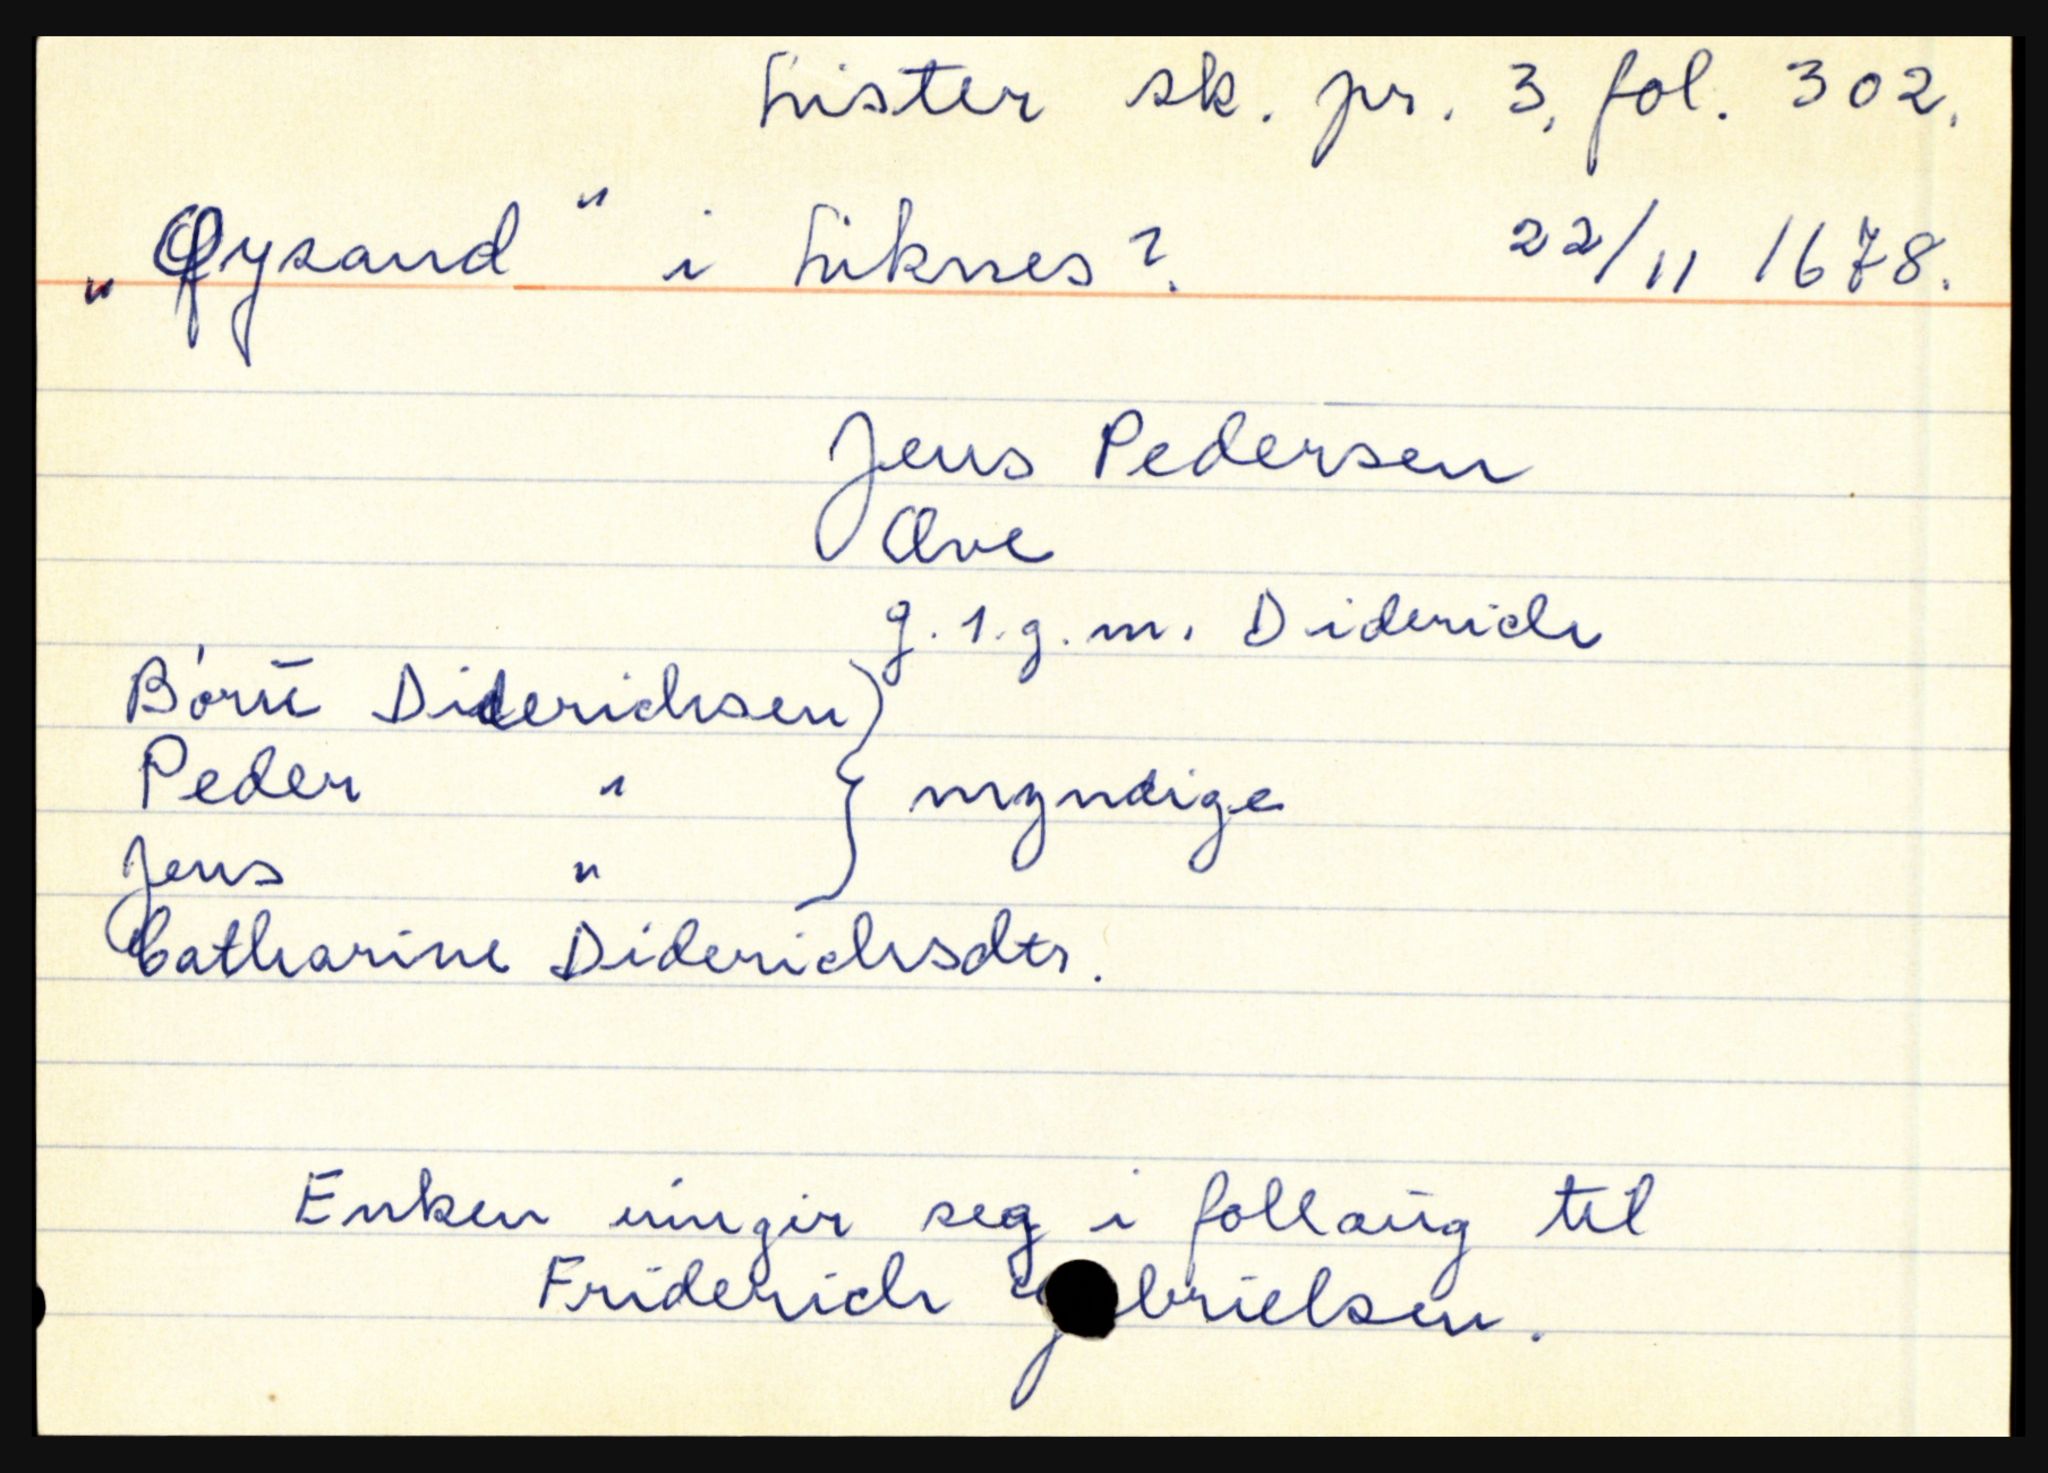 Lister sk. pr. 3, fol. 302.
„Øysand" i Liknes? 22/11 1678.
Jens Pedersen
Ave
g. 1. g. m. Diderich
Børu Diderichsen
Peder " } myndige
Jens "
Catharine Diderichsdtr.
Enken inngir seg i follaug til
Friderich brielsen.